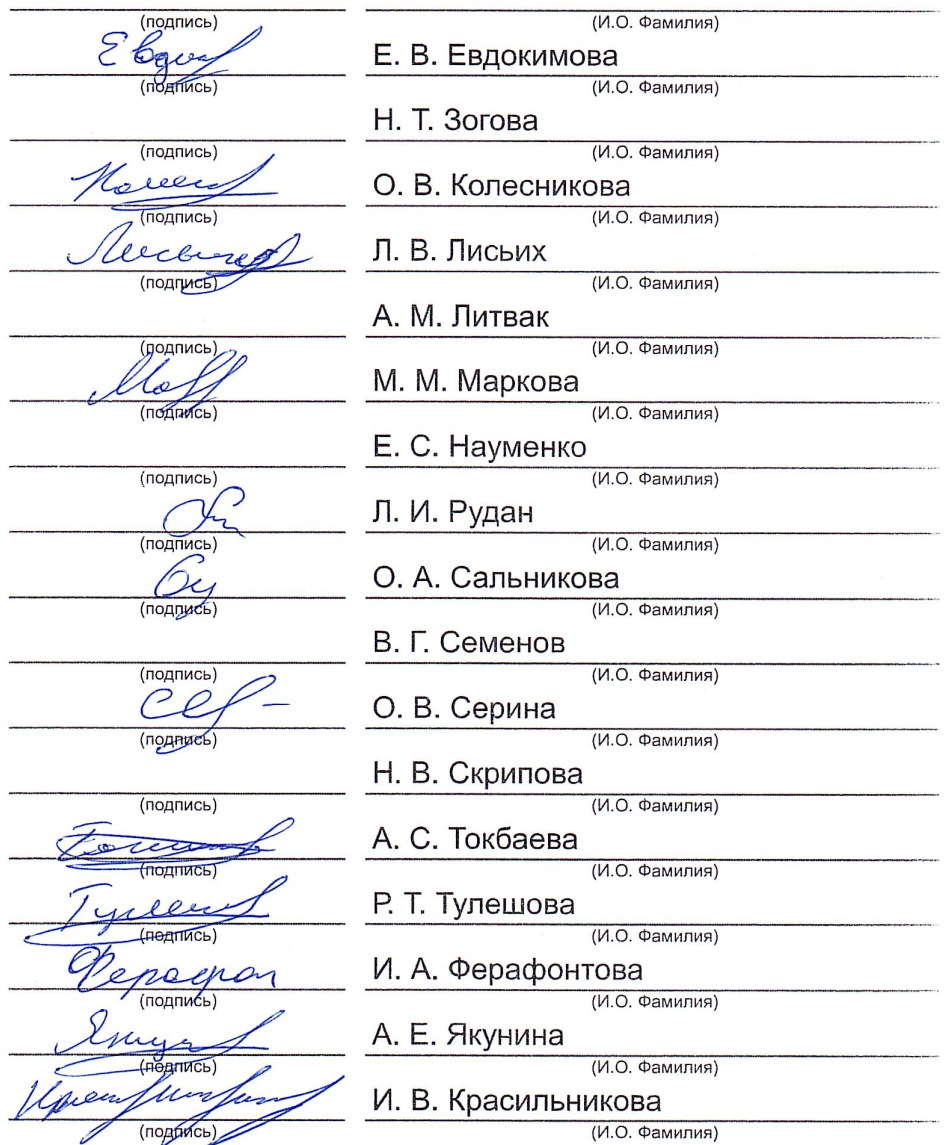 (подпись) (И.О. Фамилия)
Евдок Е. В. Евдокимова
(подпись) (И.О. Фамилия)
Н. Т. Зогова
(подпись) (И.О. Фамилия)
О. В. Колесникова
(подпись) (И.О. Фамилия)
Л. В. Лисьих
(подпись) (И.О. Фамилия)
А. М. Литвак
(подпись) (И.О. Фамилия)
М. М. Маркова
(подпись) (И.О. Фамилия)
Е. С. Науменко
(подпись) (И.О. Фамилия)
Л. И. Рудан
(подпись) (И.О. Фамилия)
О. А. Сальникова
(подпись) (И.О. Фамилия)
В. Г. Семенов
(подпись) (И.О. Фамилия)
О. В. Серина
(подпись) (И.О. Фамилия)
Н. В. Скрипова
(подпись) (И.О. Фамилия)
А. С. Токбаева
(подпись) (И.О. Фамилия)
Р. Т. Тулешова
(подпись) (И.О. Фамилия)
Ферафон И. А. Ферафонтова
(подпись) (И.О. Фамилия)
А. Е. Якунина
(подпись) (И.О. Фамилия)
И. В. Красильникова
(подпись) (И.О. Фамилия)